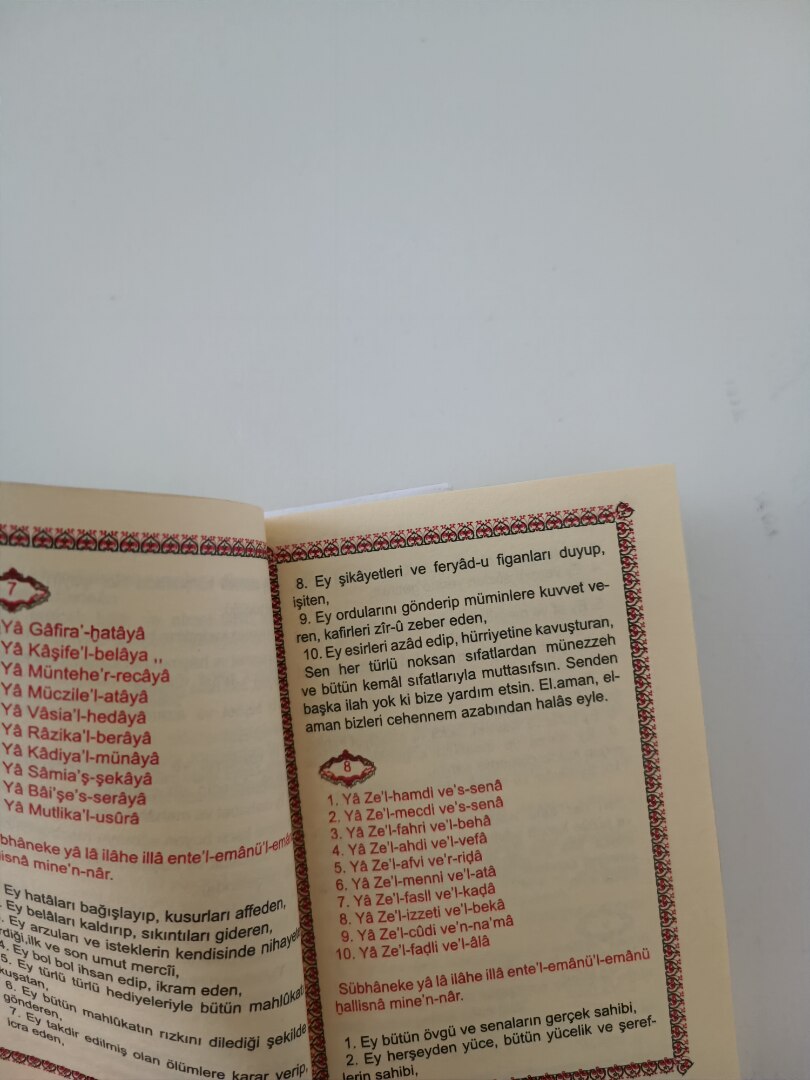 7
Yâ Gâfira'-ḫatâyâ
Yâ Kâşife'l-belâya ,,
Yâ Müntehe'r-recâyâ
Yâ Müczile'l-atâyâ
Yâ Vâsia'l-hedâyâ
Yâ Râzika'l-berâyâ
Yâ Kâdiya'l-münâyâ
Yâ Sâmia'ş-şekâyâ
Yâ Bâi'şe's-serâyâ
Yâ Mutlika'l-usûrâ
bhâneke yâ lâ ilâhe illâ ente'l-emânü'l-emân
lisnâ mine'n-nâr.
Ey hatâları bağışlayıp, kusurları affeden,
Ey belâları kaldırıp, sıkıntıları gideren,
Ey arzuları ve isteklerin kendisinde nihayete
rdiği,ilk ve son umut mercîi,
4. Ey bol bol ihsan edip, ikram eden,
5. Ey türlü türlü hediyeleriyle bütün mahlûkatı
kuşatan,
6. Ey bütün mahlûkatın rızkını dilediği şekilde
gönderen,
7. Ey takdir edilmiş olan ölümlere karar verip,
icra eden,
8. Ey şikâyetleri ve feryâd-u figanları duyup,
işiten,
9. Ey ordularını gönderip müminlere kuvvet ve-
ren, kafirleri zîr-û zeber eden,
10. Ey esirleri azâd edip, hürriyetine kavuşturan,
Sen her türlü noksan sıfatlardan münezzeh
ve bütün kemâl sıfatlarıyla muttasıfsın. Senden
başka ilah yok ki bize yardım etsin. El.aman, el-
aman bizleri cehennem azabından halâs eyle.
8
1. Yâ Ze'l-hamdi ve's-senâ
2. Yâ Ze'l-mecdi ve's-senâ
3. Yâ Ze'l-fahri ve'l-behâ
4. Yâ Ze'l-ahdi ve'l-vefâ
5. Yâ Ze'l-afvi ve'r-riḍâ
6. Yâ Ze'l-menni ve'l-atâ
7. Yâ Ze'l-fasli ve'l-kaḍâ
8. Yâ Ze'l-izzeti ve'l-bekâ
9. Yâ Ze'l-cûdi ve'n-na'mâ
10. Yâ Ze'l-faḍli ve'l-âlâ
Sübhâneke yâ lâ ilâhe illâ ente'l-emânü'l-emânü
ḫallisnâ mine'n-nâr.
1. Ey bütün övgü ve senaların gerçek sahibi,
2. Ey herşeyden yüce, bütün yücelik ve şeref-
lerin sahibi,